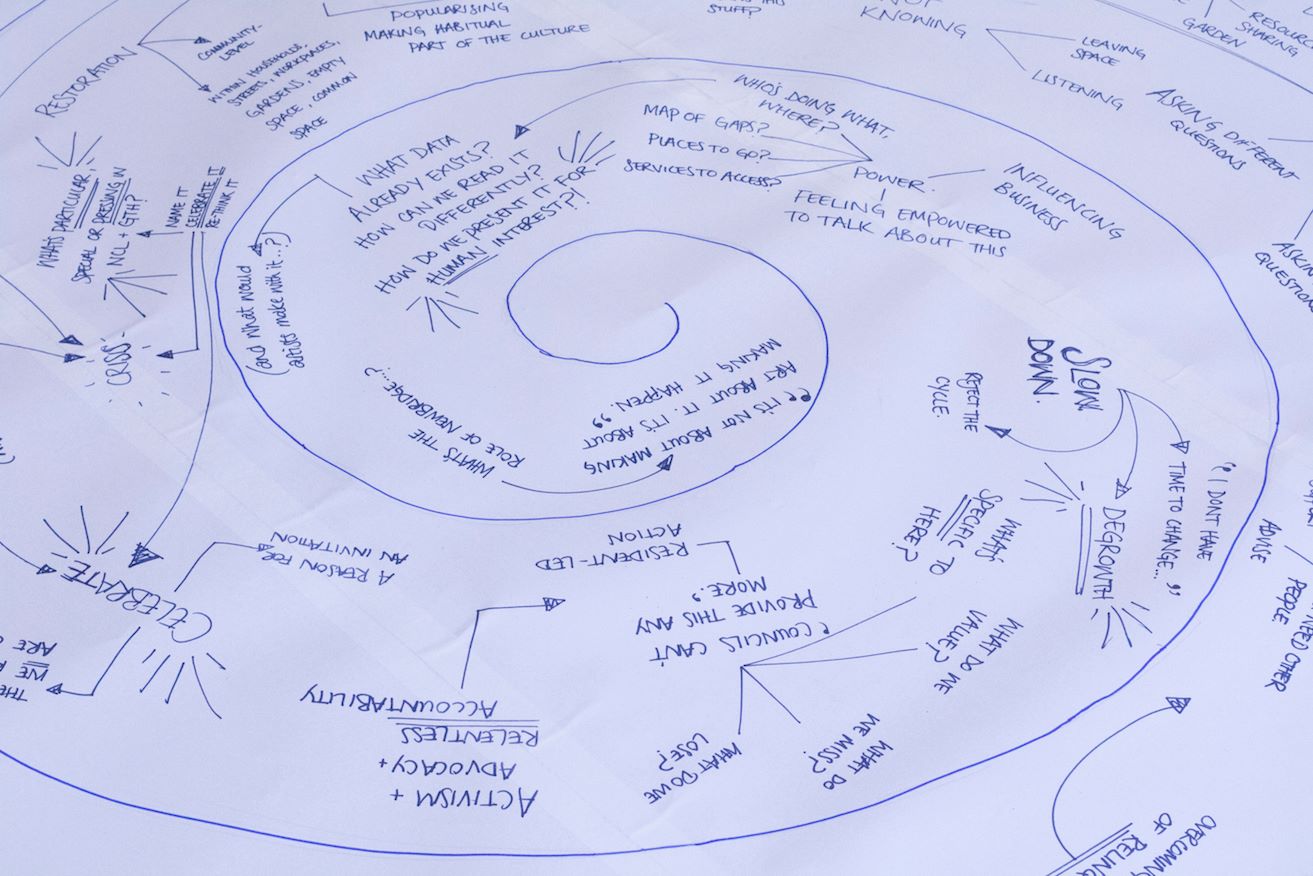 POPULARISING
MAKING HABITUAL
PART OF THE CULTURE
STUFF?
KNOWING
LEAVING
SPACE
LISTENING
GARDEN
SHARING
ASKING DIFFERENT
QUESTIONS
RESTORATION
COMMUNITY-
LEVEL
WITHIN HOUSEHOLDS,
STREETS, WORKPLACES,
GARDENS, EMPTY
SPACE, COMMON
SPACE
WHAT'S PARTICULAR,
SPECIAL OR PRESSING IN
NCL + GTH?
NAME IT
CELEBRATE IT
RE-THINK IT
CRISIS
WHO'S DOING WHAT,
WHERE?
MAP OF GAPS?
PLACES TO GO?
SERVICES TO ACCESS?
POWER.
INFLUENCING
BUSINESS
FEELING EMPOWERED
TO TALK ABOUT THIS
WHAT DATA
ALREADY EXISTS?
HOW CAN WE READ IT
DIFFERENTLY?
HOW DO WE PRESENT IT FOR
HUMAN INTEREST?!
(and what would
artists make with it..?)
WHAT'S THE
ROLE OF NEWBRIDGE..?
"IT'S NOT ABOUT MAKING
ART ABOUT IT. IT'S ABOUT
MAKING IT HAPPEN."
SLOW
DOWN.
REJECT THE
CYCLE.
DEGROWTH
"I DONT HAVE
TIME TO CHANGE..."
WHAT'S
SPECIFIC TO
HERE?
WHAT DO WE
VALUE?
WHAT DO
WE MISS?
WHAT DO WE
LOSE?
"COUNCILS CAN'T
PROVIDE THIS ANY
MORE."
RESIDENT-LED
ACTION
ACTIVISM +
ADVOCACY +
RELENTLESS
ACCOUNTABILITY
CELEBRATE
A REASON FOR
AN INVITATION
THE
WE
ARE
ABUSE
NEED OTHER
PEOPLE.
OVERCOMING
OF